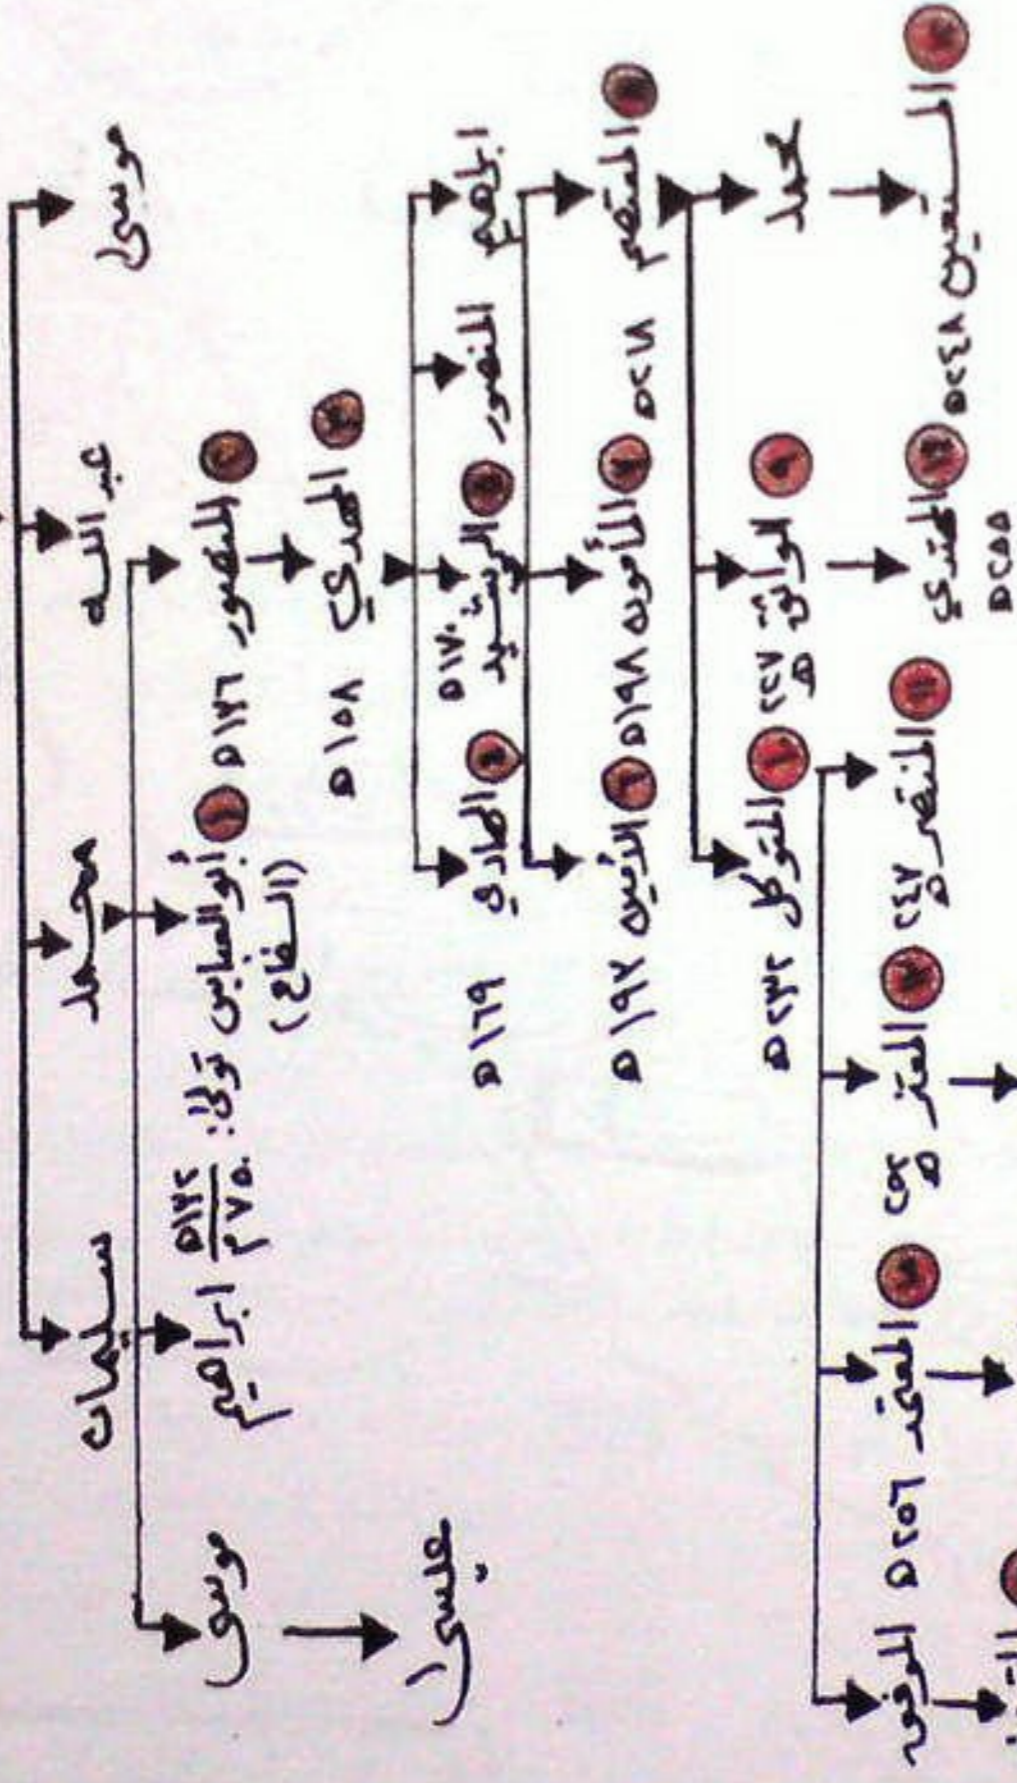 موسى عبد الله محمد سليمان
المنصور ١٣٦هـ أبو العباس تولى: ١٣٢هـ ابراهيم موسى
(السفاح) ٧٥٠م
المهدي ١٥٨هـ
عيسى
ابراهيم المنصور الرشيد ١٧٠هـ الهادي ١٦٩هـ
المعتصم ٢١٨هـ المأمون ١٩٨هـ الأمين ١٩٣هـ
محمد الواثق ٢٢٧هـ المتوكل ٢٣٢هـ
المستعين ٢٤٨هـ المهتدي المنتصر ٢٤٧هـ المعتز ٢٥٢هـ المعتمد ٢٥٦هـ الموفق
٢٥٥هـ